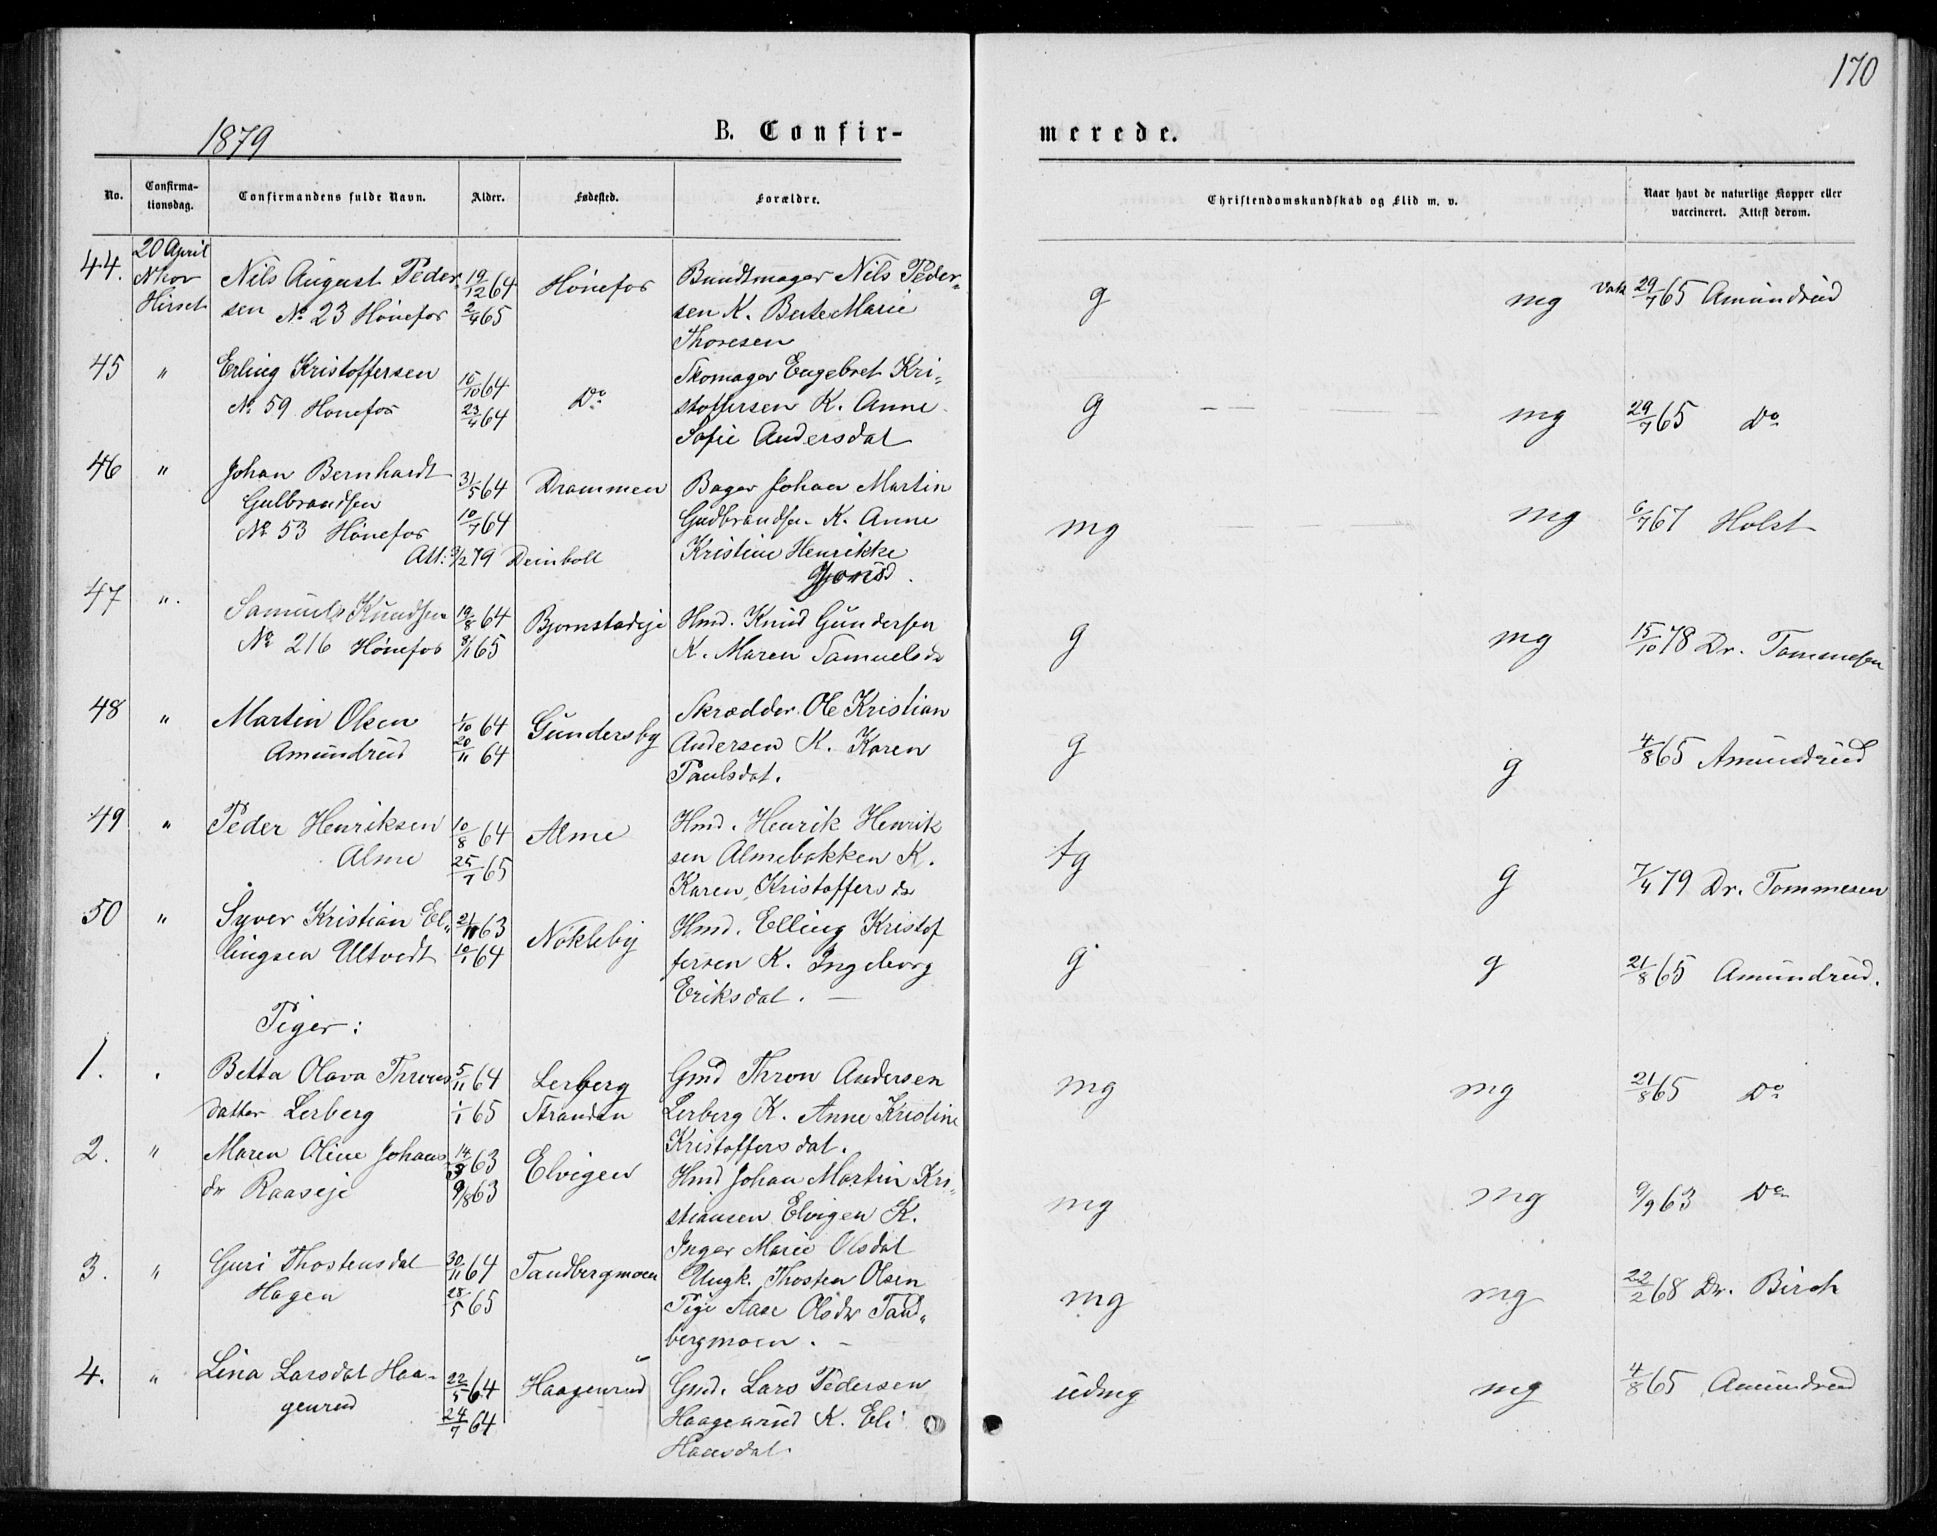 170
1879
B. Confir-
merede.
No.
Confirma-
tionsdag.
Confirmandens fulde Navn.
Alder.
Fødested.
Forældre.
Christendomskundskab og Flid m. v.
Naar havt de naturlige Kopper eller
vaccineret. Attest derom.
44. 20 April Nils August Peder- 19/12 64 Hønefos Bundtmager Nils Peder-
Hirsch sen No 23 Hønefos 2/4 65 sen K. Berte Marie
Thoresen
g mg Vak 29/7 65 Amundrud
45 " Erling Kristoffersen 15/10 64 Do Skomager Engebret Kri-
No 59 Hønefos 23/4 64 stoffersen K. Anne
Sofie Andersdat
g — — — mg 29/7 65 Do
46 " Johan Bernhardt 31/5 64 Drammen Bager Johan Martin
Gulbrandsen 10/7 64 Gudbrandsen K. Anne
No 53 Hønefos Kristine Henrikke
Att: 3/2 79 Deinboll
mg mg 6/7 67 Holst
47 " Samuel Knudsen 19/8 64 Bjornstadeje Hmd. Knud Gundersen
No 216 Hønefos 8/1 65 K. Maren Samuelsdr
g mg 15/10 78 Dr. Tommesen
48 " Martin Olsen 1/10 64 Gundersby Skrædder Ole Kristian
Amundrud 20/11 64 Andersen K. Karen
Paulsdat.
g g 4/8 65 Amundrud
49 " Peder Henriksen 10/8 64 Alme Hmd. Henrik Henrik
Alme 25/7 65 sen Almebakken K.
Karen Kristoffersdr
tg g 7/4 79 Dr. Tommesen
50 " Syver Kristian El- 21/11 63 Nokleby Hmd. Elling Kristof
lingsen Ultvedt 10/1 64 fersen K. Ingeborg
Eriksdat. —
g g 21/8 65 Amundrud.
Piger:
1. " Betta Olava Throns 5/11 64 Lerberg Gmd Thron Andersen
datter Lerberg 1/1 65 Stranden Lerberg K. Anne Kristine
Kristoffersdat.
mg mg 21/8 65 Do
2. " Maren Oline Johans 14/3 63 Elvigen Hmd Johan Martin Kri-
dr Raaseje 9/8 63 stiansen Elvigen K.
Inger Marie Olsdat
mg mg 9/9 63 Do
3. " Guri Thostensdat 30/11 64 Tandbergmoen Ungk. Thosten Olsen
Hagen 28/5 65 Pige Aase Olsdr Tand-
bergmoen. —
mg mg 22/2 68 Dr. Birch
4. " Lina Larsdat Haa- 22/5 64 Haagenrud Gmd. Lars Pedersen
genrud 24/7 64 Haagenrud K. Eli
Hansdat.
udmg mg 4/8 65 Amundrud